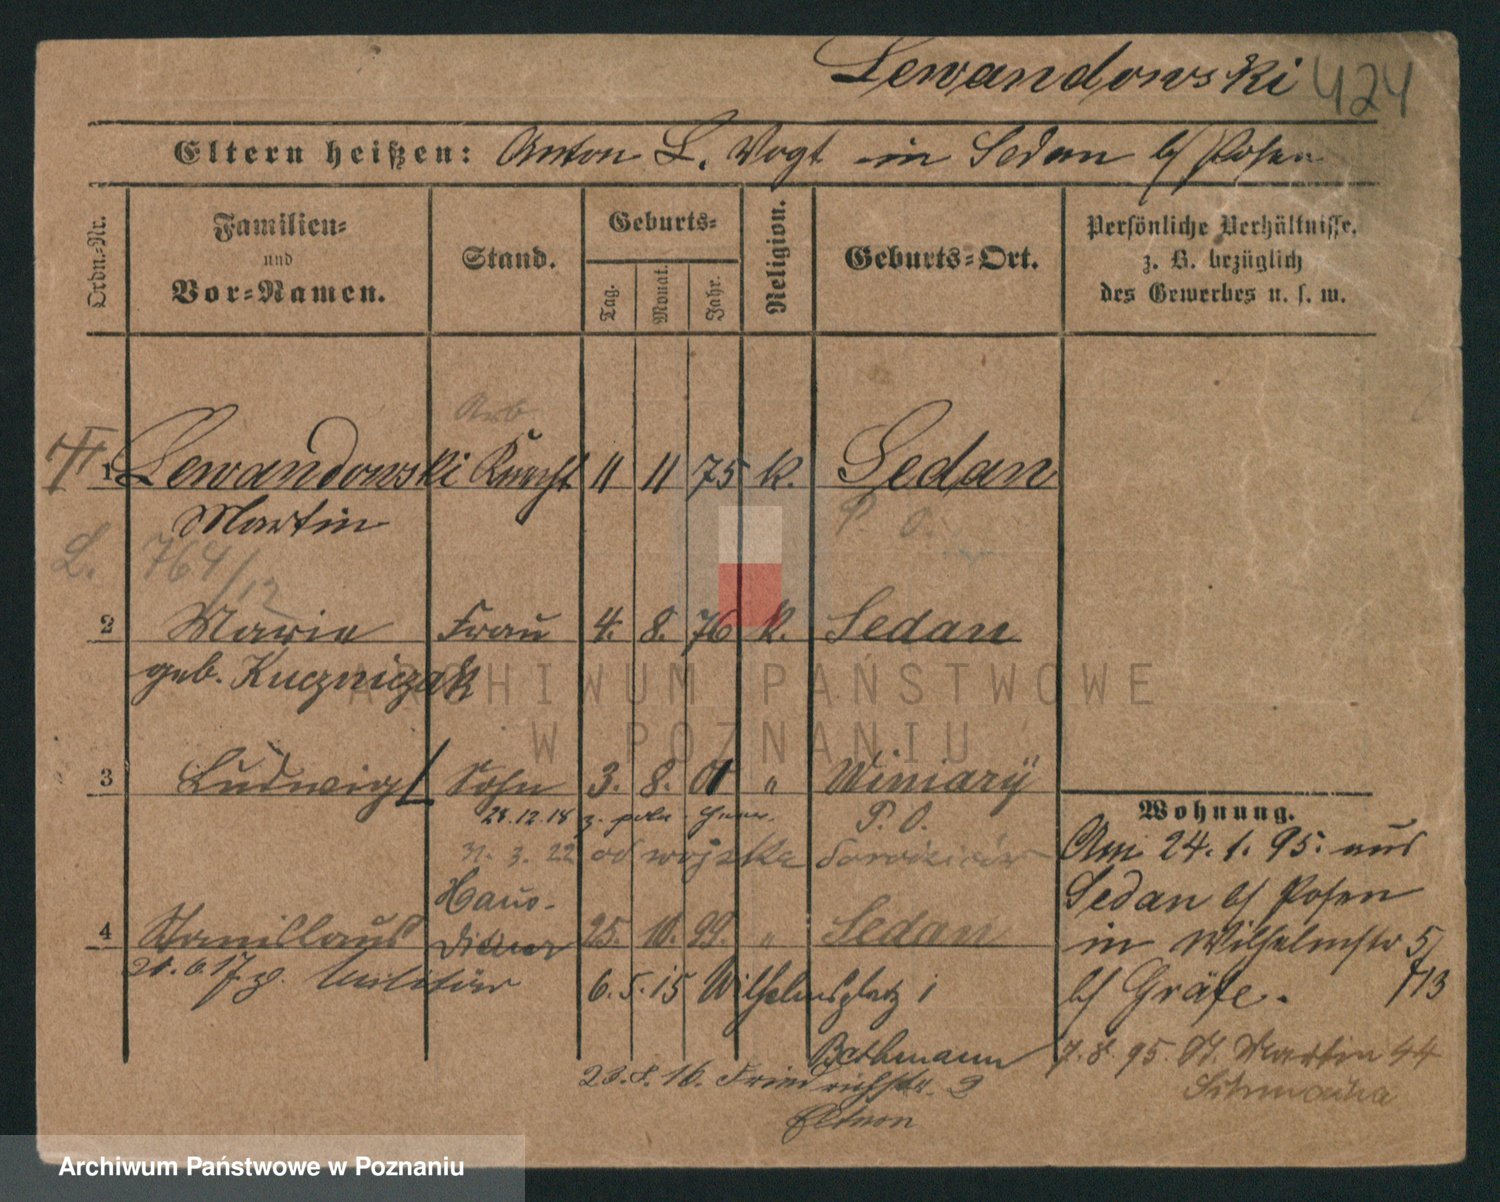 Lewandowski 424
Eltern heißen: Anton L. Vogt in Sedan b/ Posen
Ordn.-Nr.
Familien- und Vor-Namen.
Stand.
Geburts-
Tag. Monat. Jahr.
Religion.
Geburts-Ort.
Persönliche Verhältnisse,
z. B. bezüglich
des Gewerbes u. s. w.
Arb.
1 Lewandowski Knecht 11 11 75 k. Sedan
Martin P. O.
L. 764/12
2 Marie Frau 4. 8. 76 k. Sedan
geb. Kuczniczak
3 Ludwig Sohn 3. 8. 01 " Winiary
28.12.18 z. poln. P. O.
31. 3. 22 od wojska
Haus-
4 Stanislaus Diener 25. 10. 99. " Sedan
21.6.17 z. Militär
6.5.15 Wilhelmsplatz 1
Bethmann
23.8.16. Friedrichstr. 2
Wohnung.
Am 24.1.95. aus
Sedan b/ Posen
in Wilhelmstr 5
b/ Gräfe. 713
7.8.95 St. Martin 44
ARCHIWUM PAŃSTWOWE
W POZNANIU
Archiwum Państwowe w Poznaniu